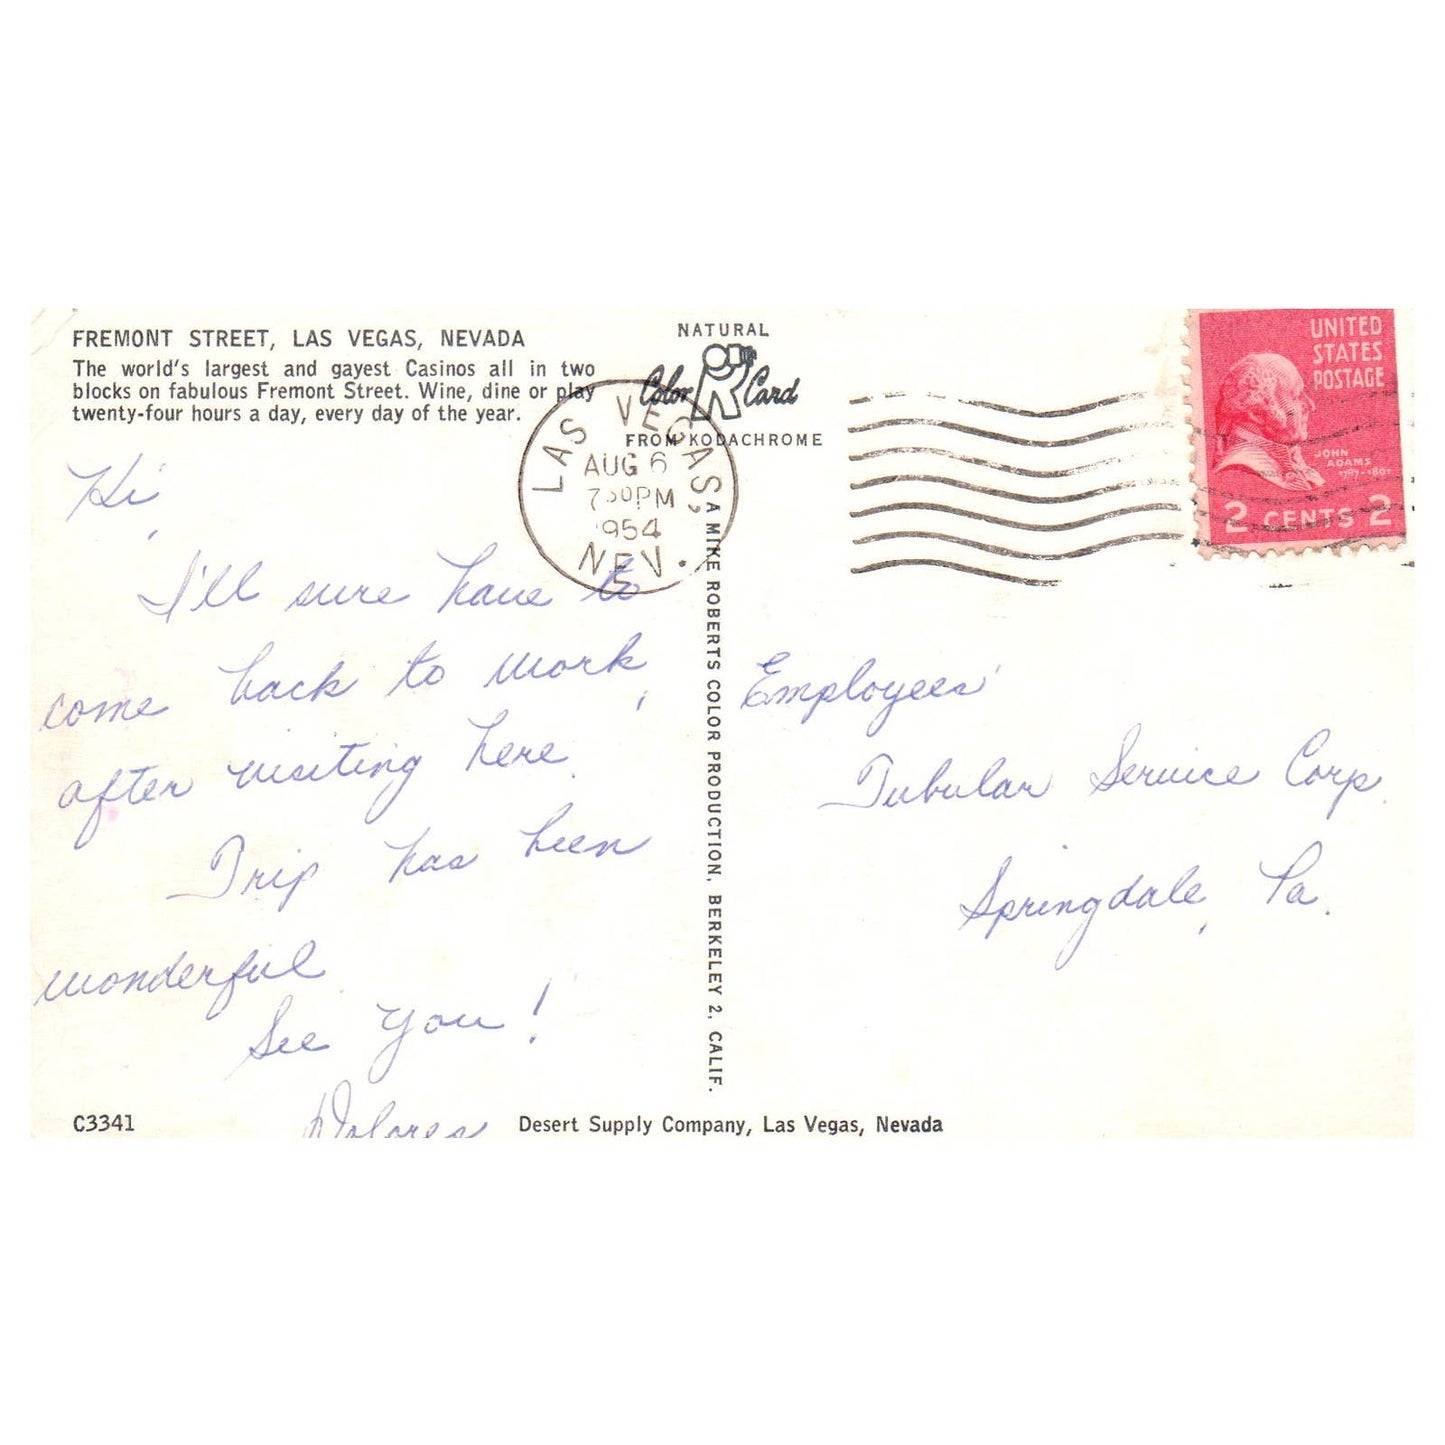 FREMONT STREET, LAS VEGAS, NEVADA
The world's largest and gayest Casinos all in two
blocks on fabulous Fremont Street. Wine, dine or play
twenty-four hours a day, every day of the year.
Hi,
I'll sure have to
come back to work,
after visiting here.
Trip has been
wonderful.
See you!
Dolores
C3341
NATURAL
Color Card
FROM KODACHROME
LAS VEGAS,
AUG 6
730PM
1954
NEV.
A MIKE ROBERTS COLOR PRODUCTION, BERKELEY 2, CALIF.
UNITED
STATES
POSTAGE
JOHN
ADAMS
1797-1801
2 CENTS 2
Employees'
Tubular Service Corp.
Springdale, Pa.
Desert Supply Company, Las Vegas, Nevada